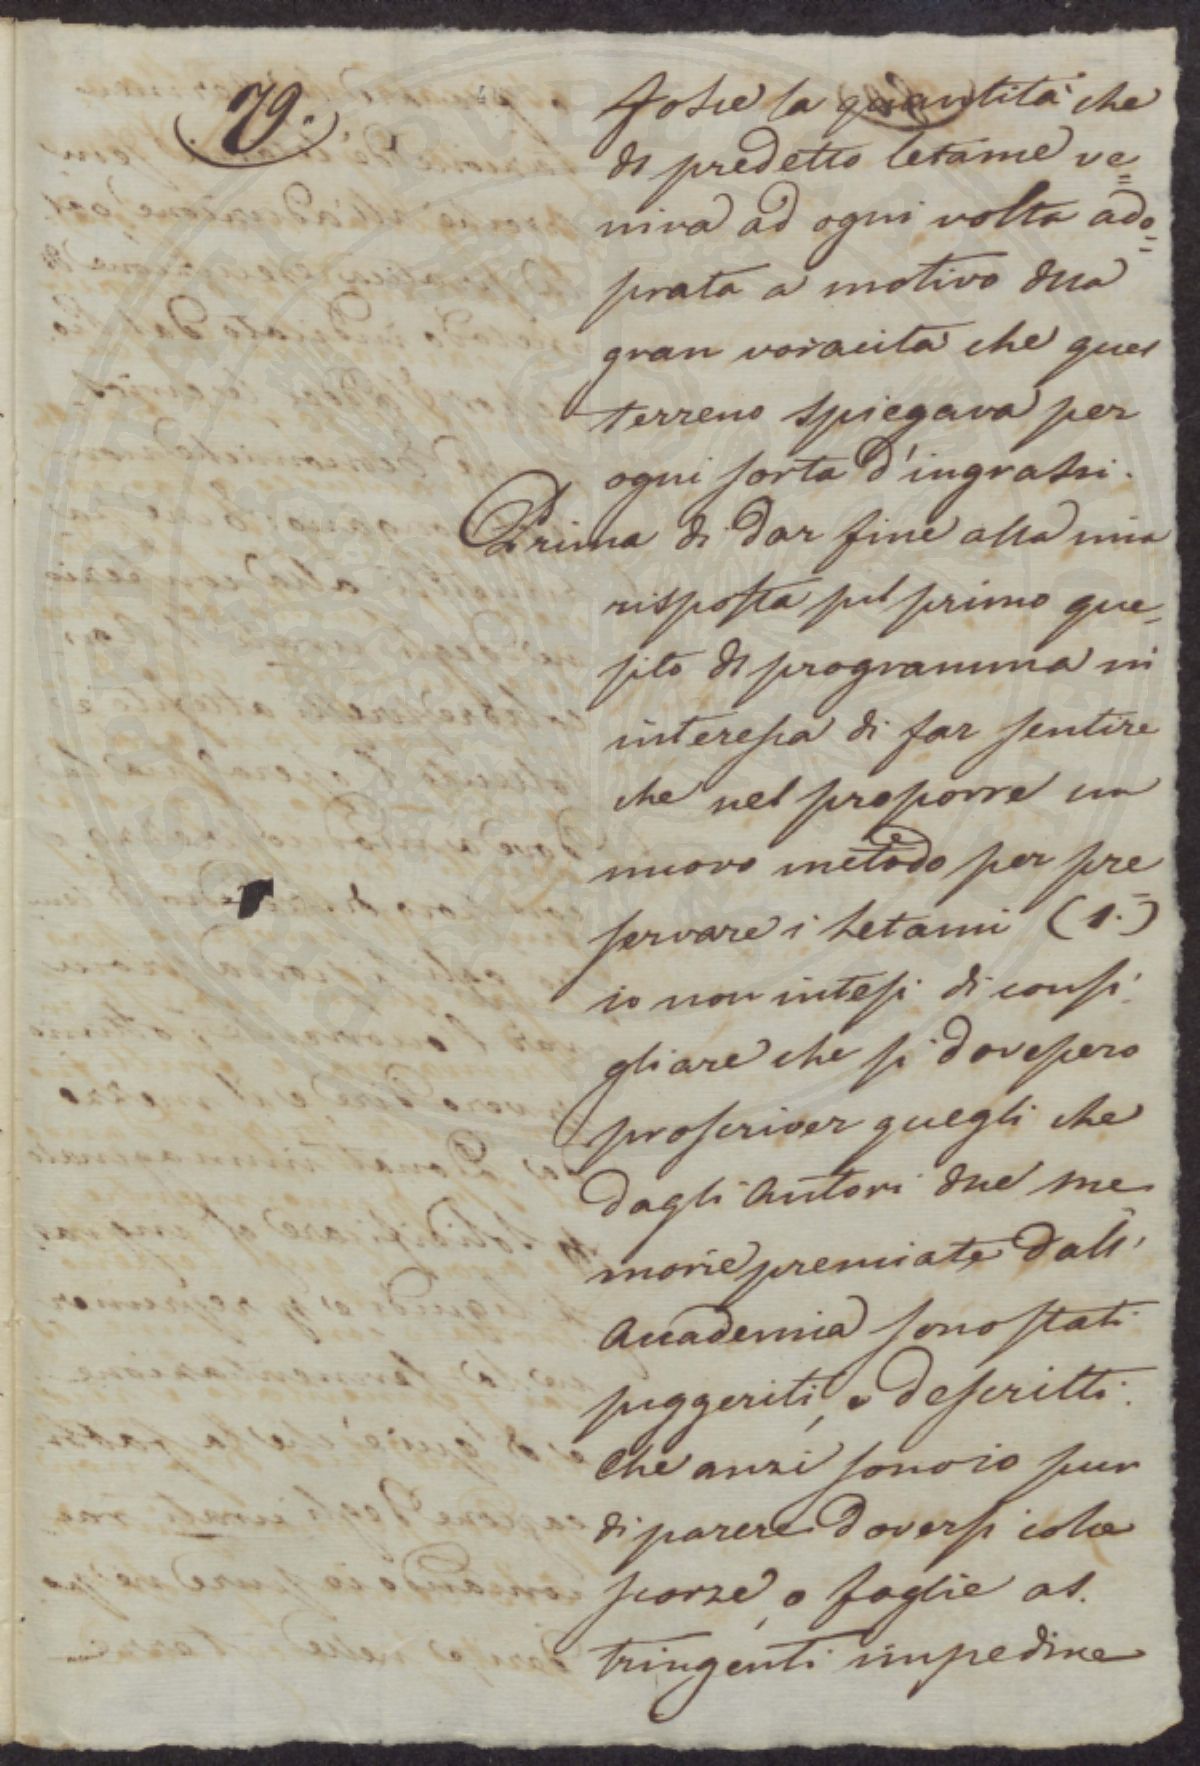 79.
fosse la quantità che
di predetto letame ve=
niva ad ogni volta ado=
prata a motivo della
gran voracità che quel
terreno spiegava per
ogni sorta d'ingrassi.
Prima di dar fine alla mia
risposta sul primo que,
sito di programma mi
interessa di far sentire
che nel proporre un
nuovo metodo per pre
servare i Letami (1.)
io non intesi di consi,
gliare che si dovessero
proscriver quegli che
dagli Autori delle me
morie premiate dall'
Accademia sono stati
suggeriti, e descritti.
Che anzi sono io pur
di parere doversi colle
scorze, o foglie as.
tringenti impedire